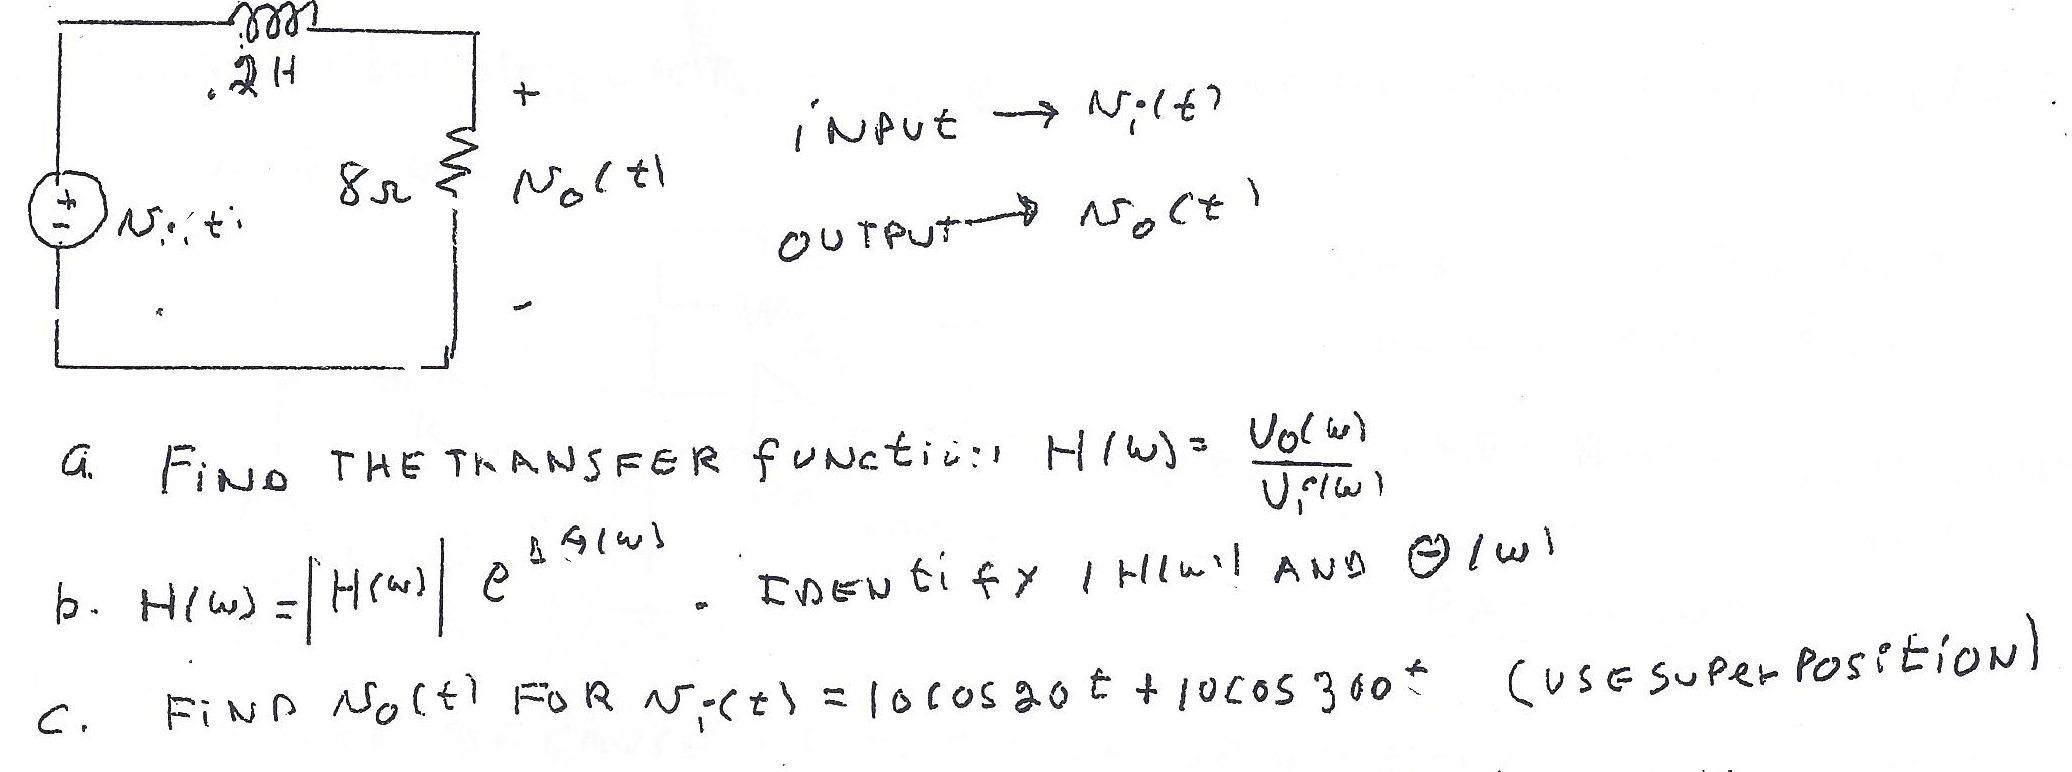 .2H
+
INPUT → v_i(t)
8Ω
v_o(t)
+
-
v_i(t)
OUTPUT → v_o(t)
-
a. FIND THE TRANSFER function H(ω) = Vo(ω) / Vi(ω)
b. H(ω) = |H(ω)| e^jθ(ω) . IDENtify |H(ω)| AND θ(ω)
c. FIND v_o(t) FOR v_i(t) = 10cos20t + 10cos300t (USE SUPERPOSITION)